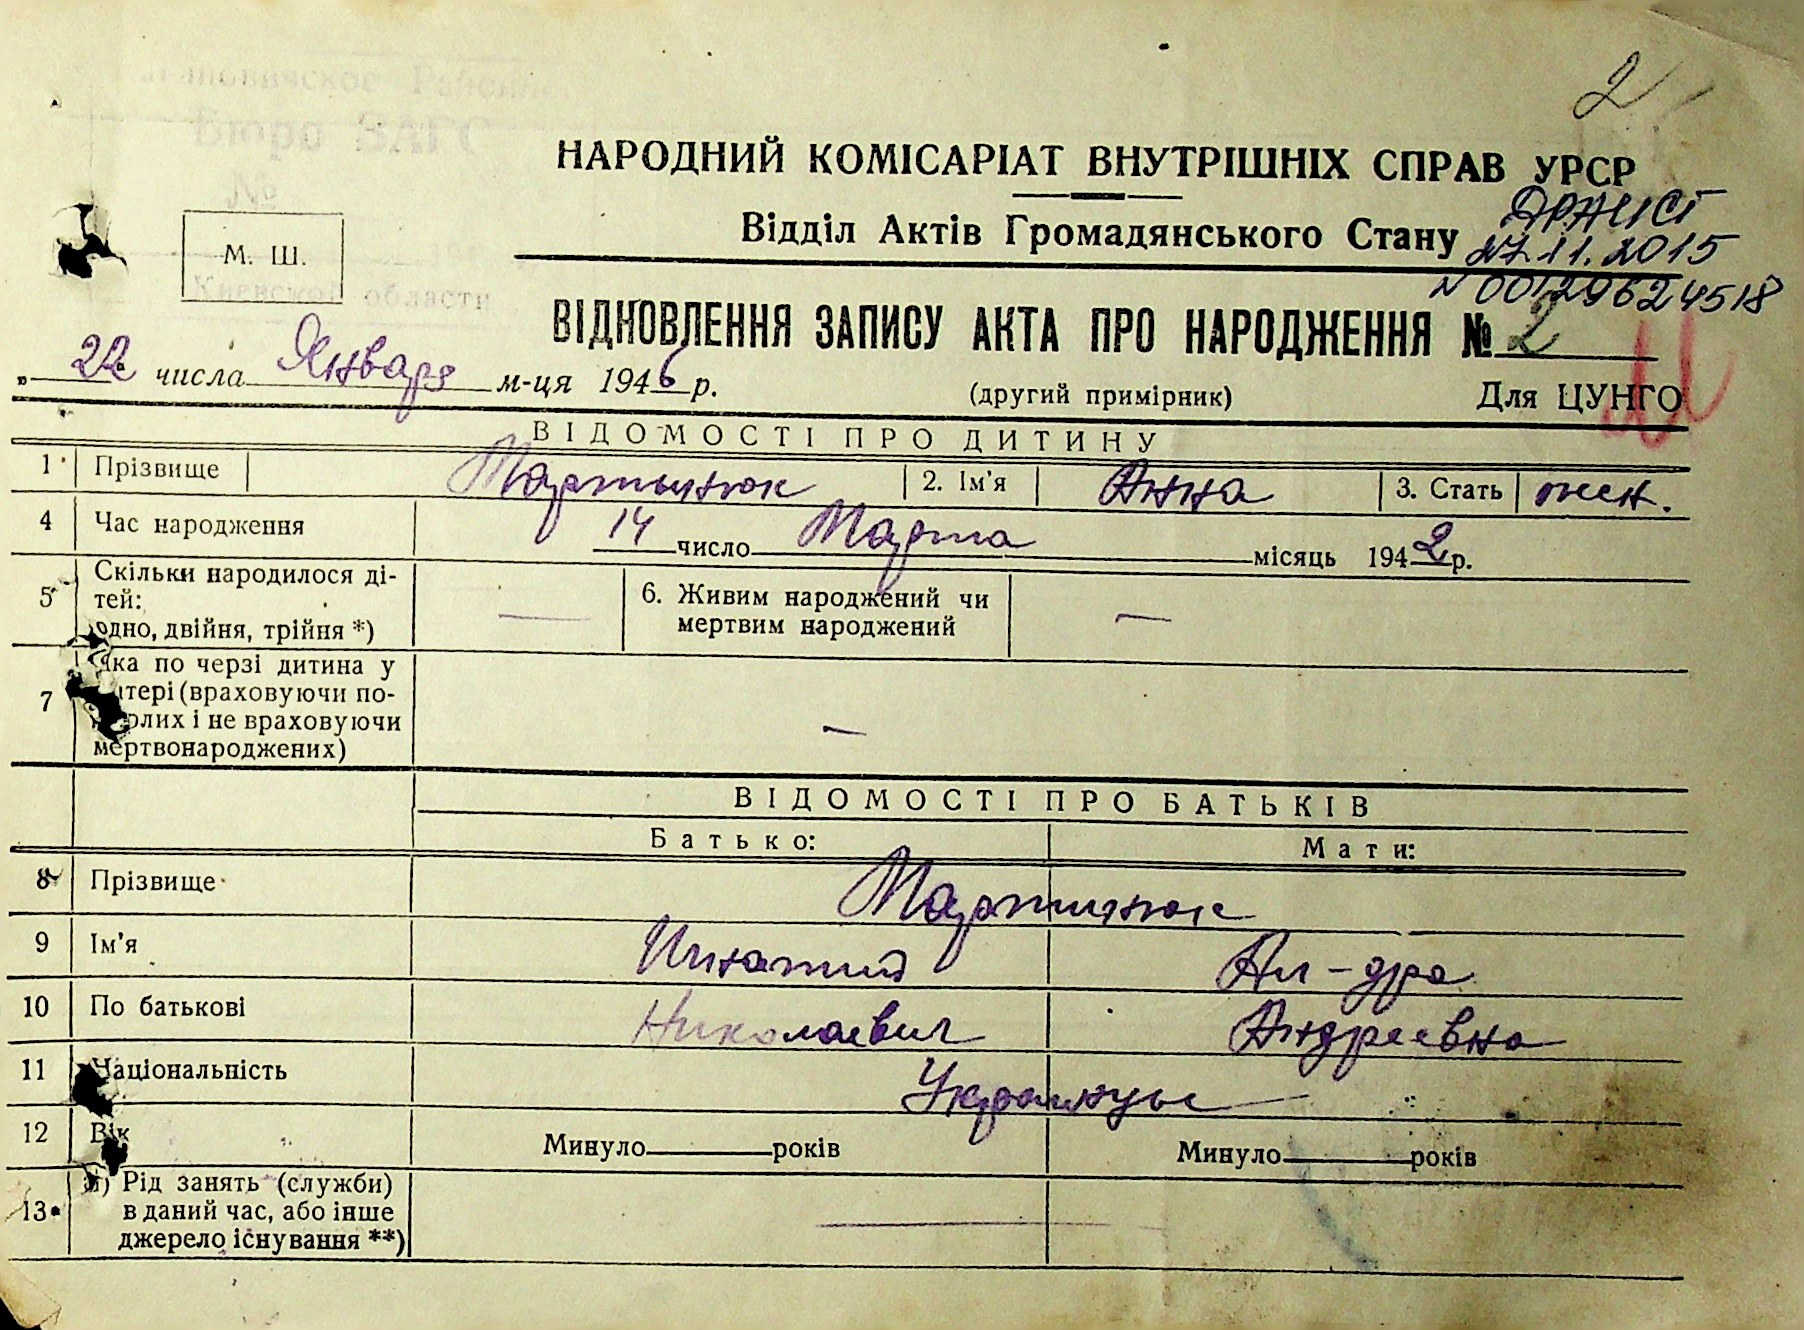 2
Бюро ЗАГС
№
Киевской области
НАРОДНИЙ КОМІСАРІАТ ВНУТРІШНІХ СПРАВ УРСР
М. Ш.
Відділ Актів Громадянського Стану
ДРАЦСГ
27.11.2015
N 00129624518
ВІДНОВЛЕННЯ ЗАПИСУ АКТА ПРО НАРОДЖЕННЯ № 2
„ 22 числа Января м-ця 1946 р.
(другий примірник)
Для ЦУНГО
ВІДОМОСТІ ПРО ДИТИНУ
1 Прізвище Мартынюк 2. Ім'я Анна 3. Стать жен.
4 Час народження 14 число Марта місяць 1942 р.
5 Скільки народилося ді-
тей:
одно, двійня, трійня *) —
6. Живим народжений чи
мертвим народжений —
7 Яка по черзі дитина у
матері (враховуючи по-
мерлих і не враховуючи
мертвонароджених) —
ВІДОМОСТІ ПРО БАТЬКІВ
Батько: Мати:
8 Прізвище Мартинюк
9 Ім'я Игнатий Ал-дра
10 По батькові Николаевич Андреевна
11 Національність Украинцы
12 Вік Минуло років Минуло років
13 а) Рід занять (служби)
в даний час, або інше
джерело існування **)